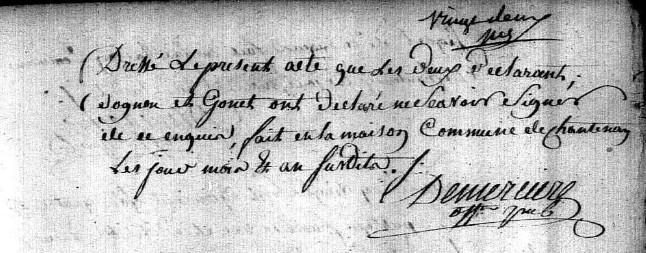 Vingt deux
Dressé le present acte que les deux declarant,
et Gonet ont declaré ne scavoir signer
de ce enquis, fait en la maison Commune de chantenay
les jour mois & an susdits.
Demerciers
off. pub